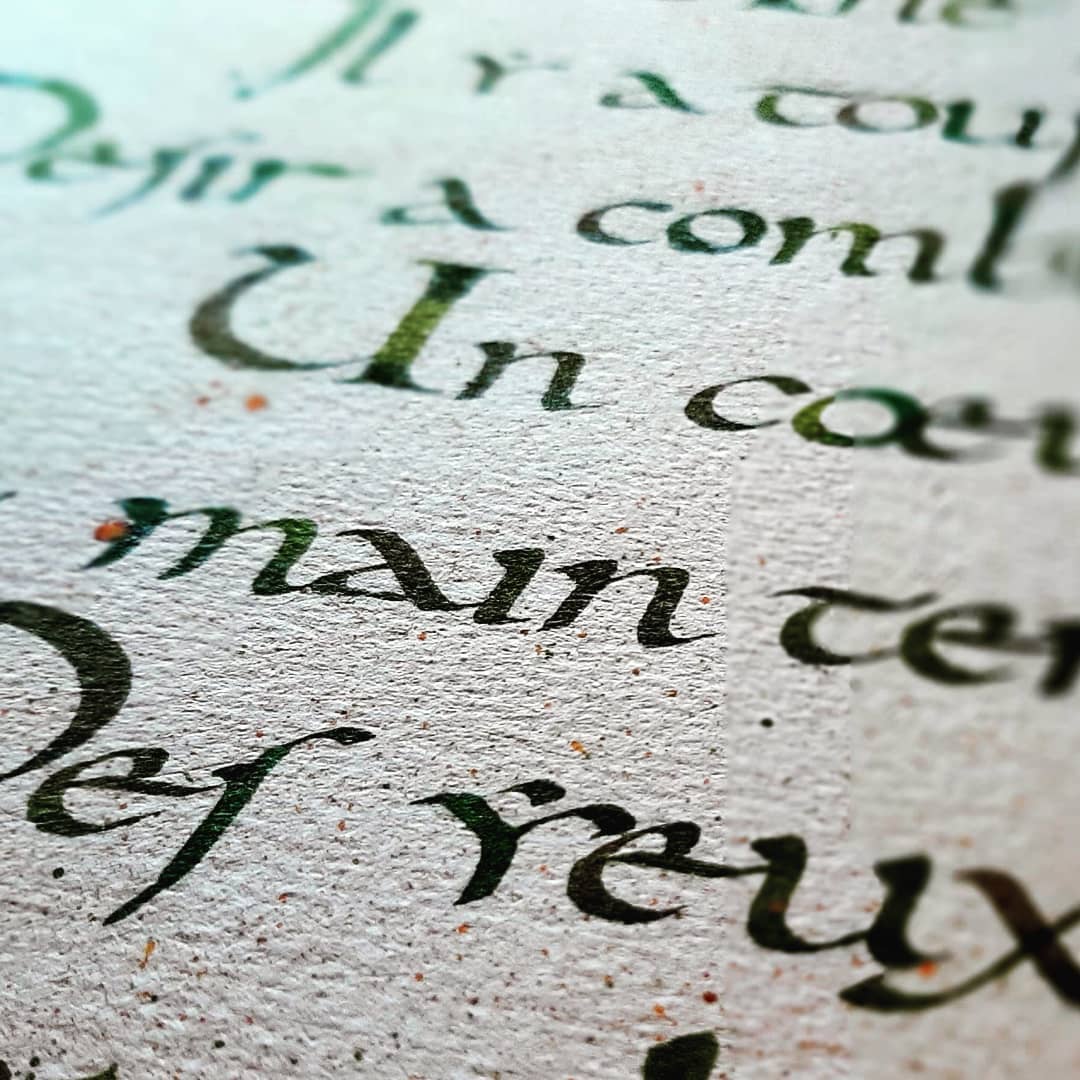 Il y a touj
Desir a comb
Un cœu
main ten
Des yeux